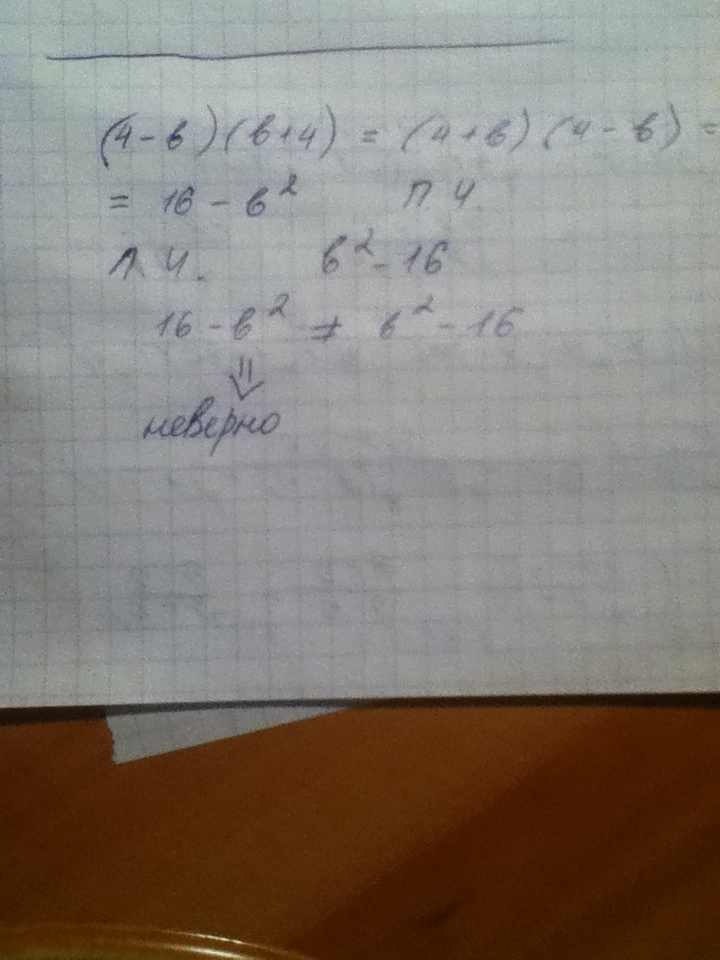 (4-в)(в+4) = (4+в)(4-в) =
= 16 - в² П.Ч
Л.Ч. в² - 16
16 - в² ≠ в² - 16
⇓
неверно